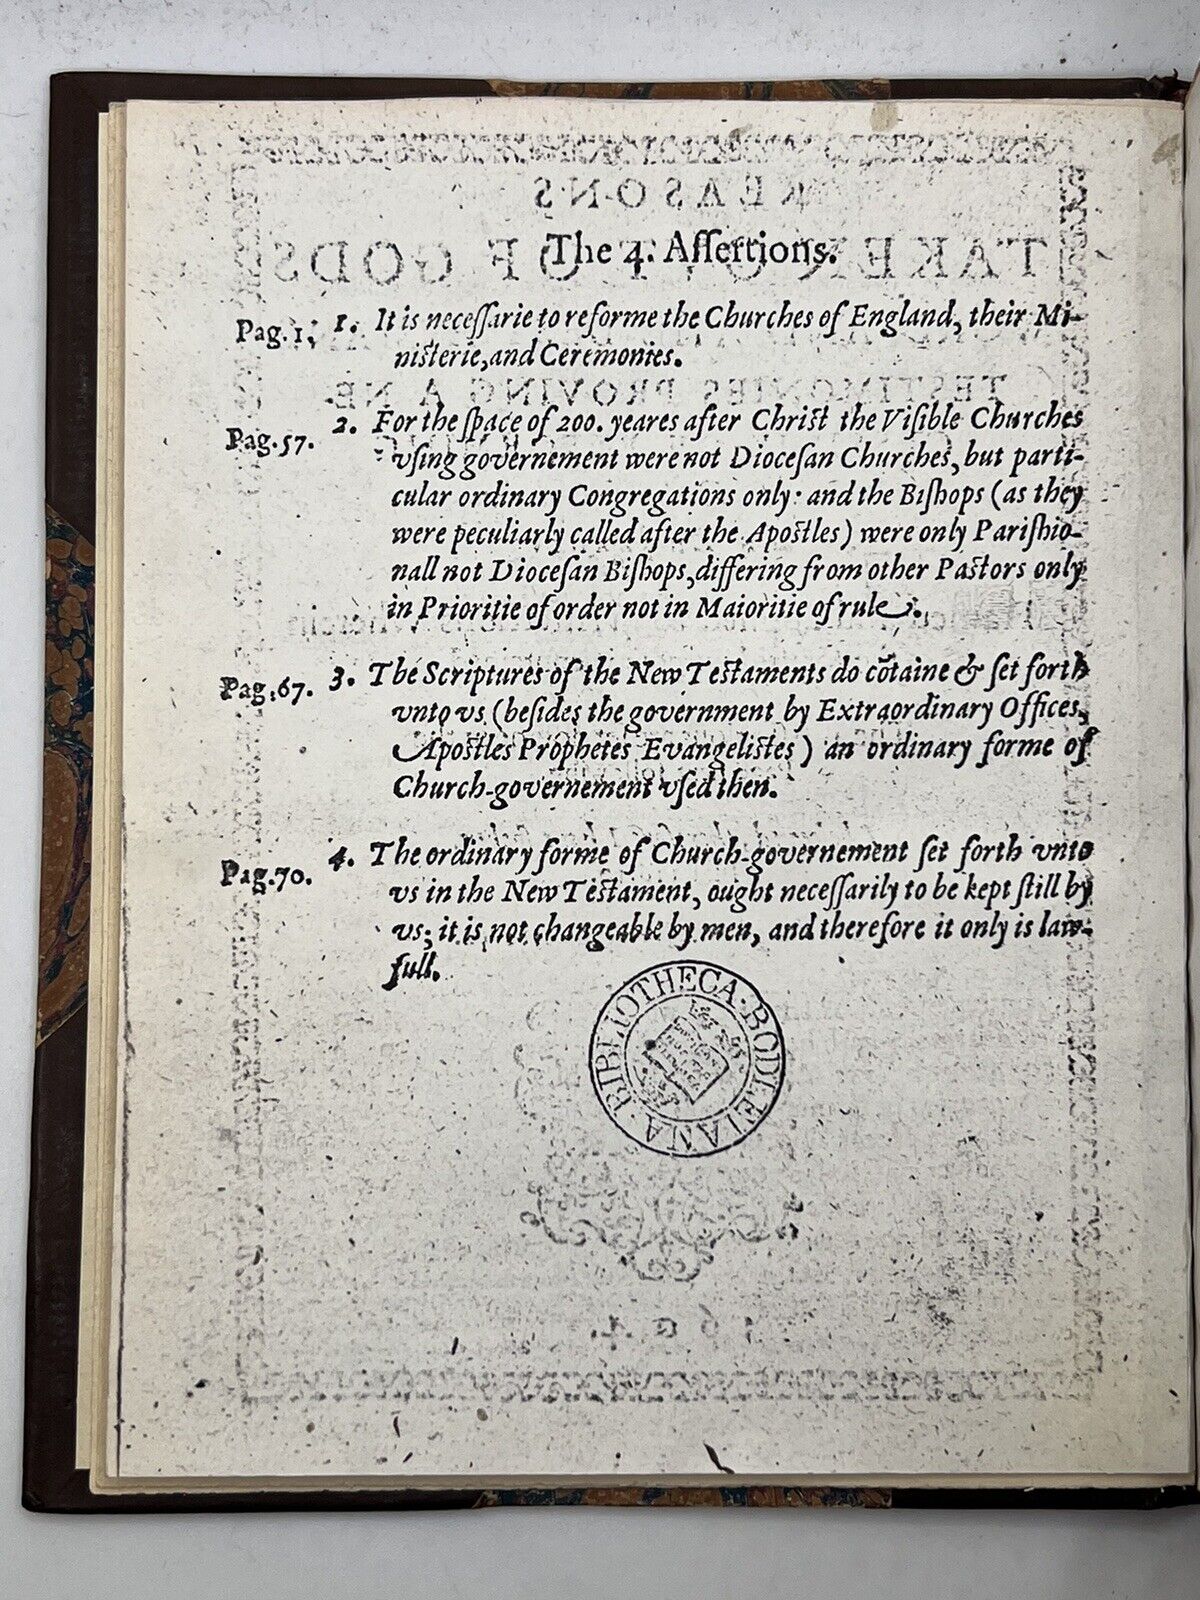 The 4. Aſſertions.
Pag. 1. 1. It is neceſſarie to reforme the Churches of England, their Mi-
niſterie, and Ceremonies.
Pag. 57. 2. For the ſpace of 200. yeares after Chriſt the Viſible Churches
vſing governement were not Dioceſan Churches, but parti-
cular ordinary Congregations only: and the Biſhops (as they
were peculiarly called after the Apoſtles) were only Pariſhio-
nall not Dioceſan Biſhops, differing from other Paſtors only
in Prioritie of order not in Maioritie of rule.
Pag. 67. 3. The Scriptures of the New Teſtaments do cōtaine & ſet forth
vnto vs (beſides the government by Extraordinary Offices,
Apoſtles Prophetes Evangeliſtes) an ordinary forme of
Church-governement vſed then.
Pag. 70. 4. The ordinary forme of Church-governement ſet forth vnto
vs in the New Teſtament, ought neceſſarily to be kept ſtill by
vs; it is not changeable by men, and therefore it only is law-
full.
BIBLIOTHECA·BODLEIANA·
REASONS
TAKEN OF GODS
TESTIMONIES PROVING A NE-